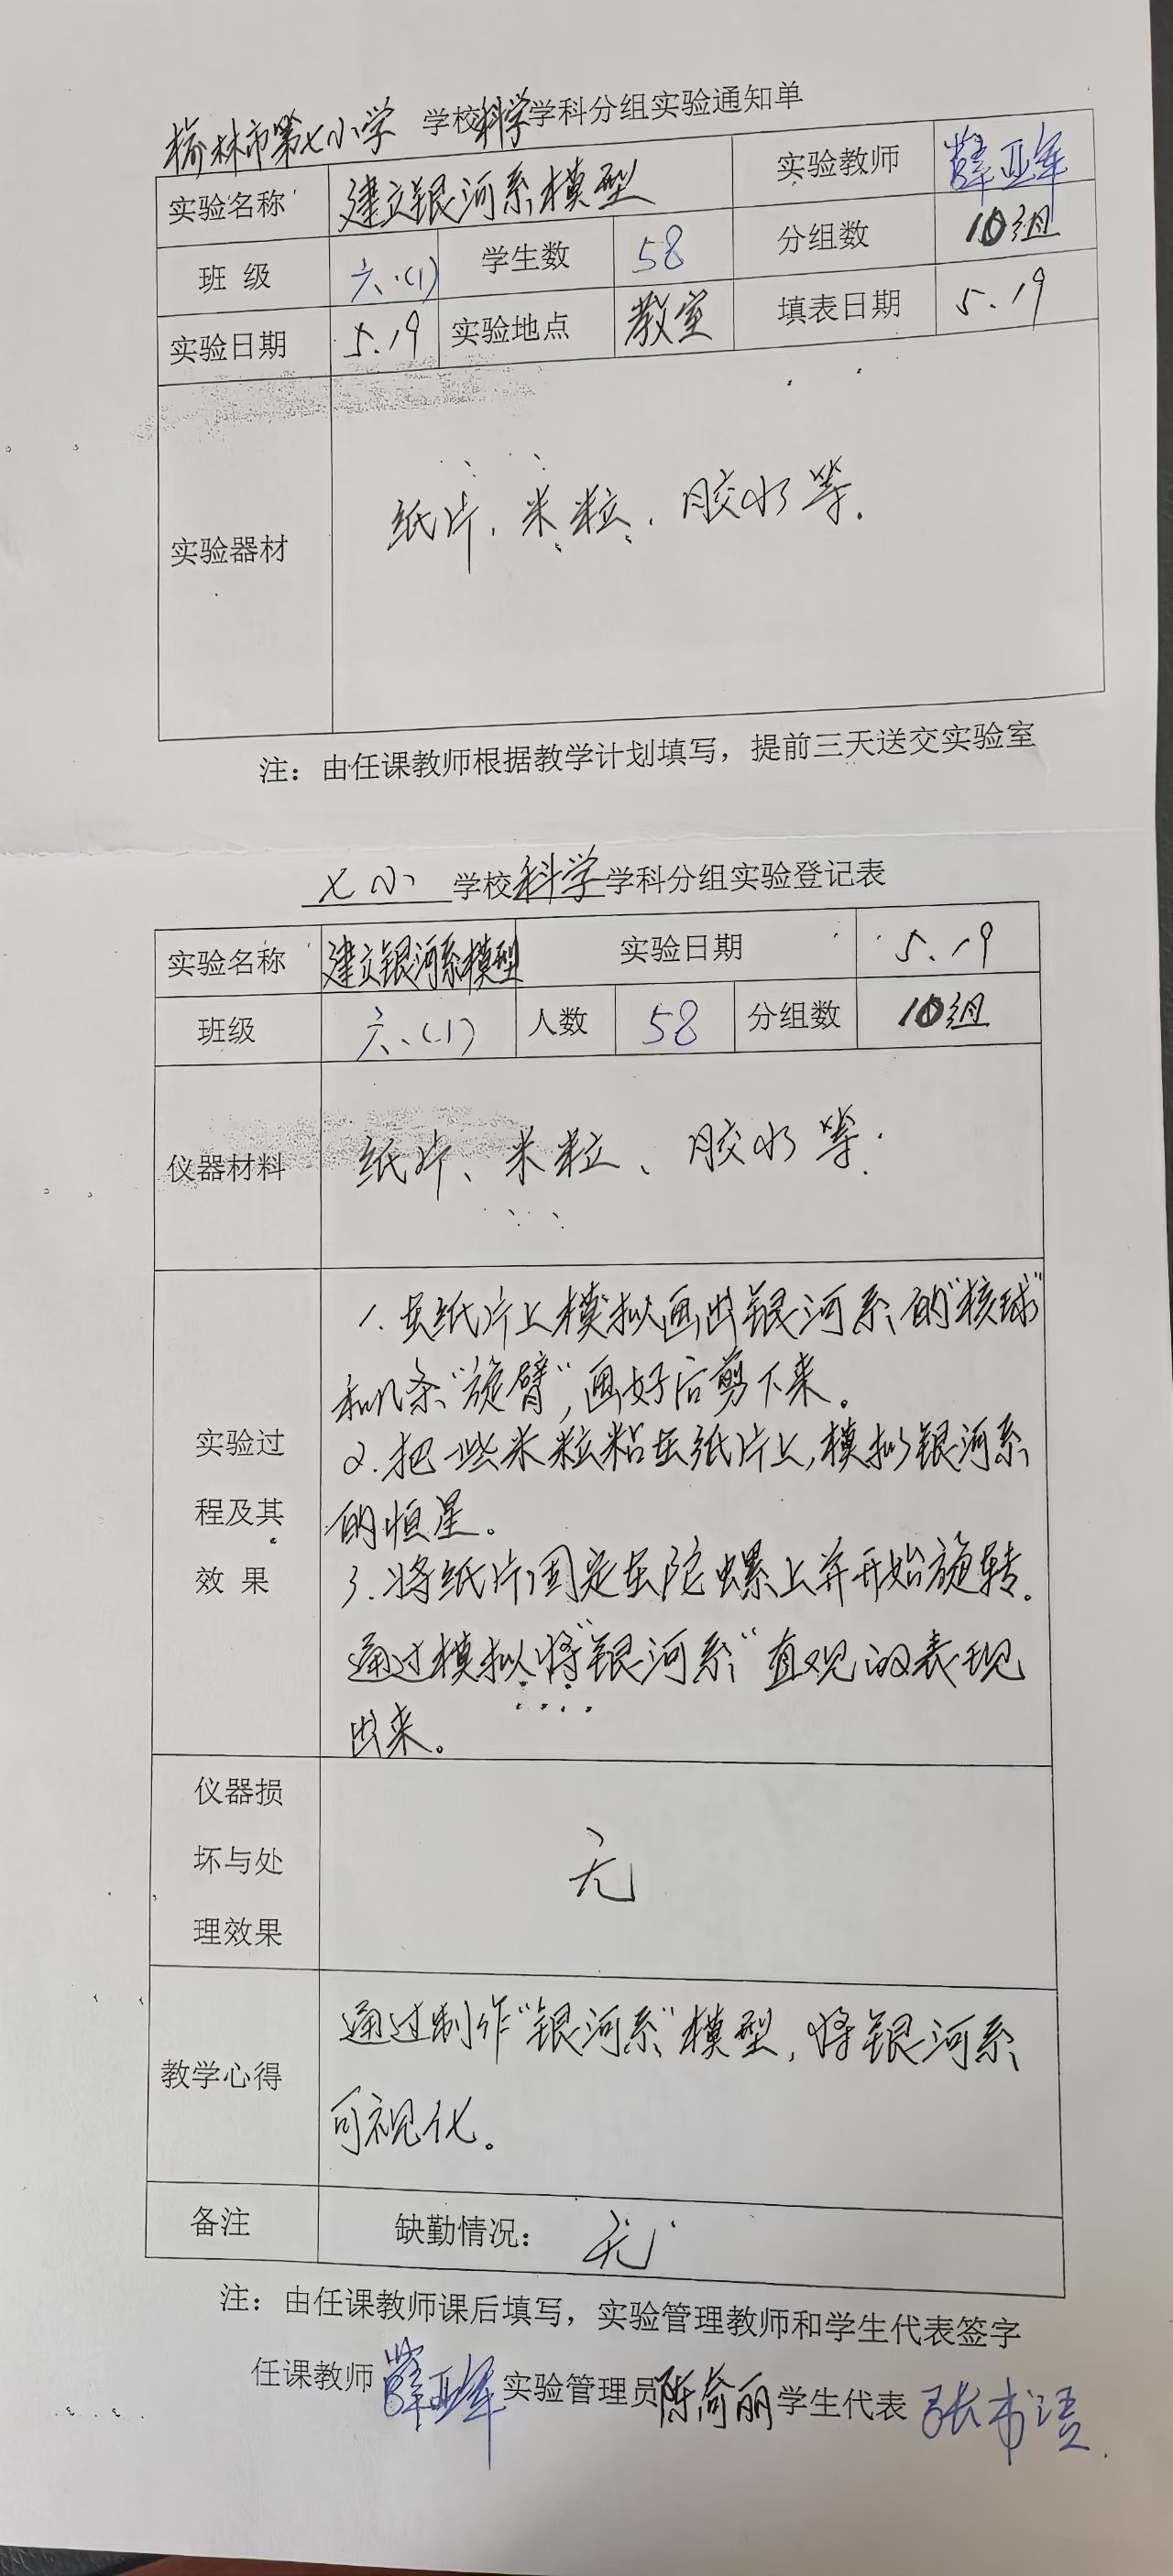 榆林市第七小学 学校科学学科分组实验通知单
实验名称 建立银河系模型 实验教师 薛亚军
班 级 六.(1) 学生数 58 分组数 10组
实验日期 5.19 实验地点 教室 填表日期 5.19
实验器材 纸片、米粒、胶水等.
注：由任课教师根据教学计划填写，提前三天送交实验室
七小 学校科学学科分组实验登记表
实验名称 建立银河系模型 实验日期 5.19
班级 六.(1) 人数 58 分组数 10组
仪器材料 纸片、米粒、胶水等.
实验过
程及其
效 果
1.在纸片上模拟画出银河系的“核球”
和几条“旋臂”,画好后剪下来。
2.把一些米粒粘在纸片上,模拟银河系
的恒星。
3.将纸片固定在陀螺上并开始旋转.
通过模拟将“银河系”直观的表现
出来。
仪器损
坏与处
理效果
无
教学心得
通过制作“银河系”模型,将银河系
可视化。
备注 缺勤情况： 无
注：由任课教师课后填写，实验管理教师和学生代表签字
任课教师 薛亚军 实验管理员 陈 丽 学生代表 张